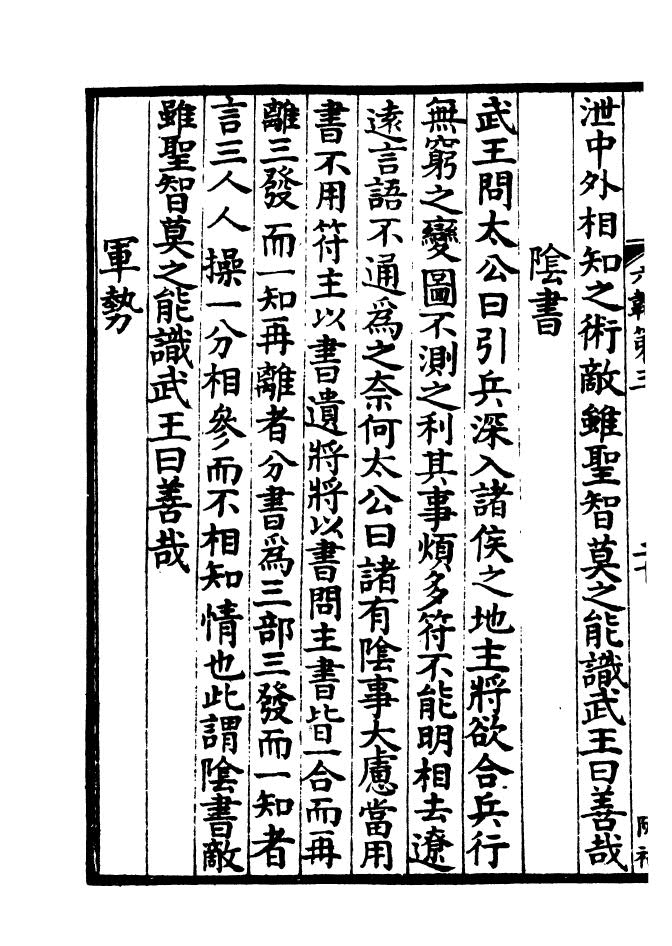 泄中外相知之術敵雖聖智莫之能識武王曰善哉
陰書
武王問太公曰引兵深入諸侯之地主將欲合兵行
無窮之變圖不測之利其事煩多符不能明相去遼
遠言語不通爲之奈何太公曰諸有陰事大慮當用
書不用符主以書遺將將以書問主書皆一合而再
離三發而一知再離者分書爲三部三發而一知者
言三人人操一分相參而不相知情也此謂陰書敵
雖聖智莫之能識武王曰善哉
軍勢